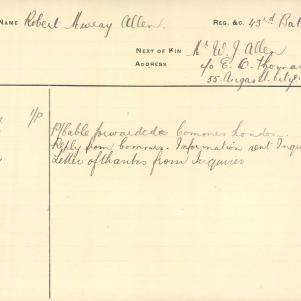 NAME Robert Murray Allen. REG. &C. 43rd Bat
NEXT OF KIN Mr W. J. Allen
ADDRESS c/o E. O. Thomas
55 Angas St. City.
1/p P/Cable forwarded Commrs London.
Reply from Commrs. Information sent Inqui
Letter of thanks from Inquiries